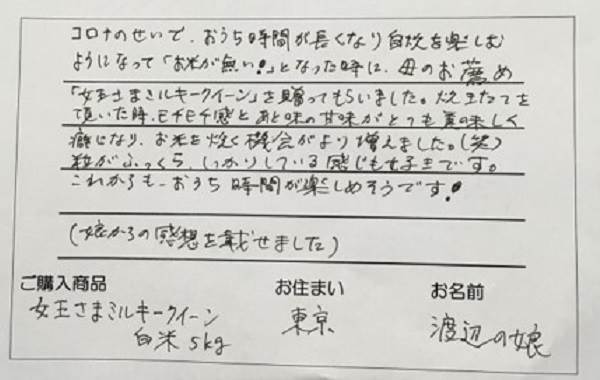 コロナのせいで、おうち時間が長くなり自炊を楽しむ
ようになって「お米が無い!」となった時に、母のお薦め
「女王さまミルキークイーン」を贈ってもらいました。炊きたてを
頂いた時、モチモチ感とあと味の甘味がとても美味しく
癖になり、お米を炊く機会がより増えました。(笑)
粒がふっくら、しっかりしている感じも好きです。
これからも、おうち時間が楽しめそうです!
(娘からの感想を載せました)
ご購入商品 お住まい お名前
女王さまミルキークイーン 東京 渡辺の娘
白米 5kg